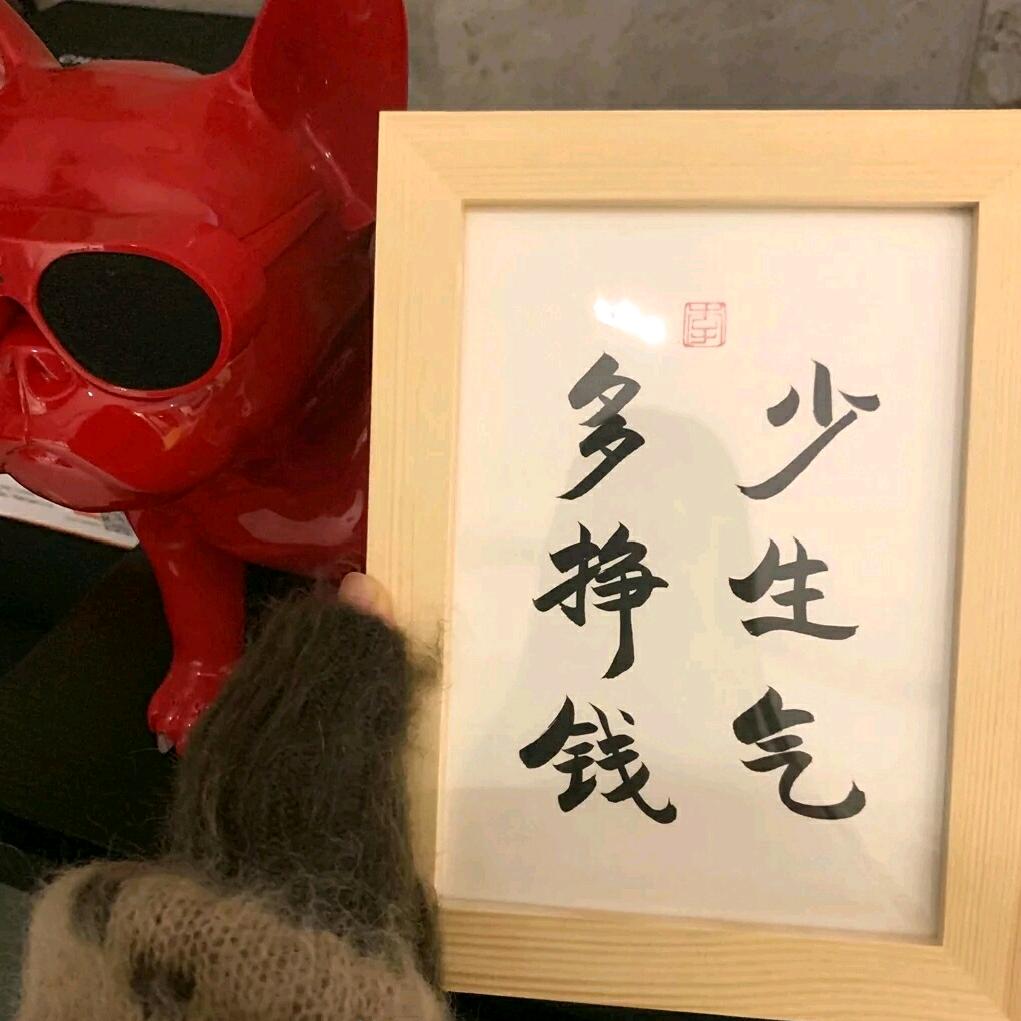 少生气
多挣钱
李